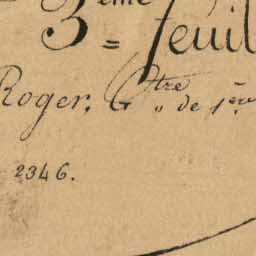 3ème = feuil
Roger, Gtre „ de 1ère
2346.